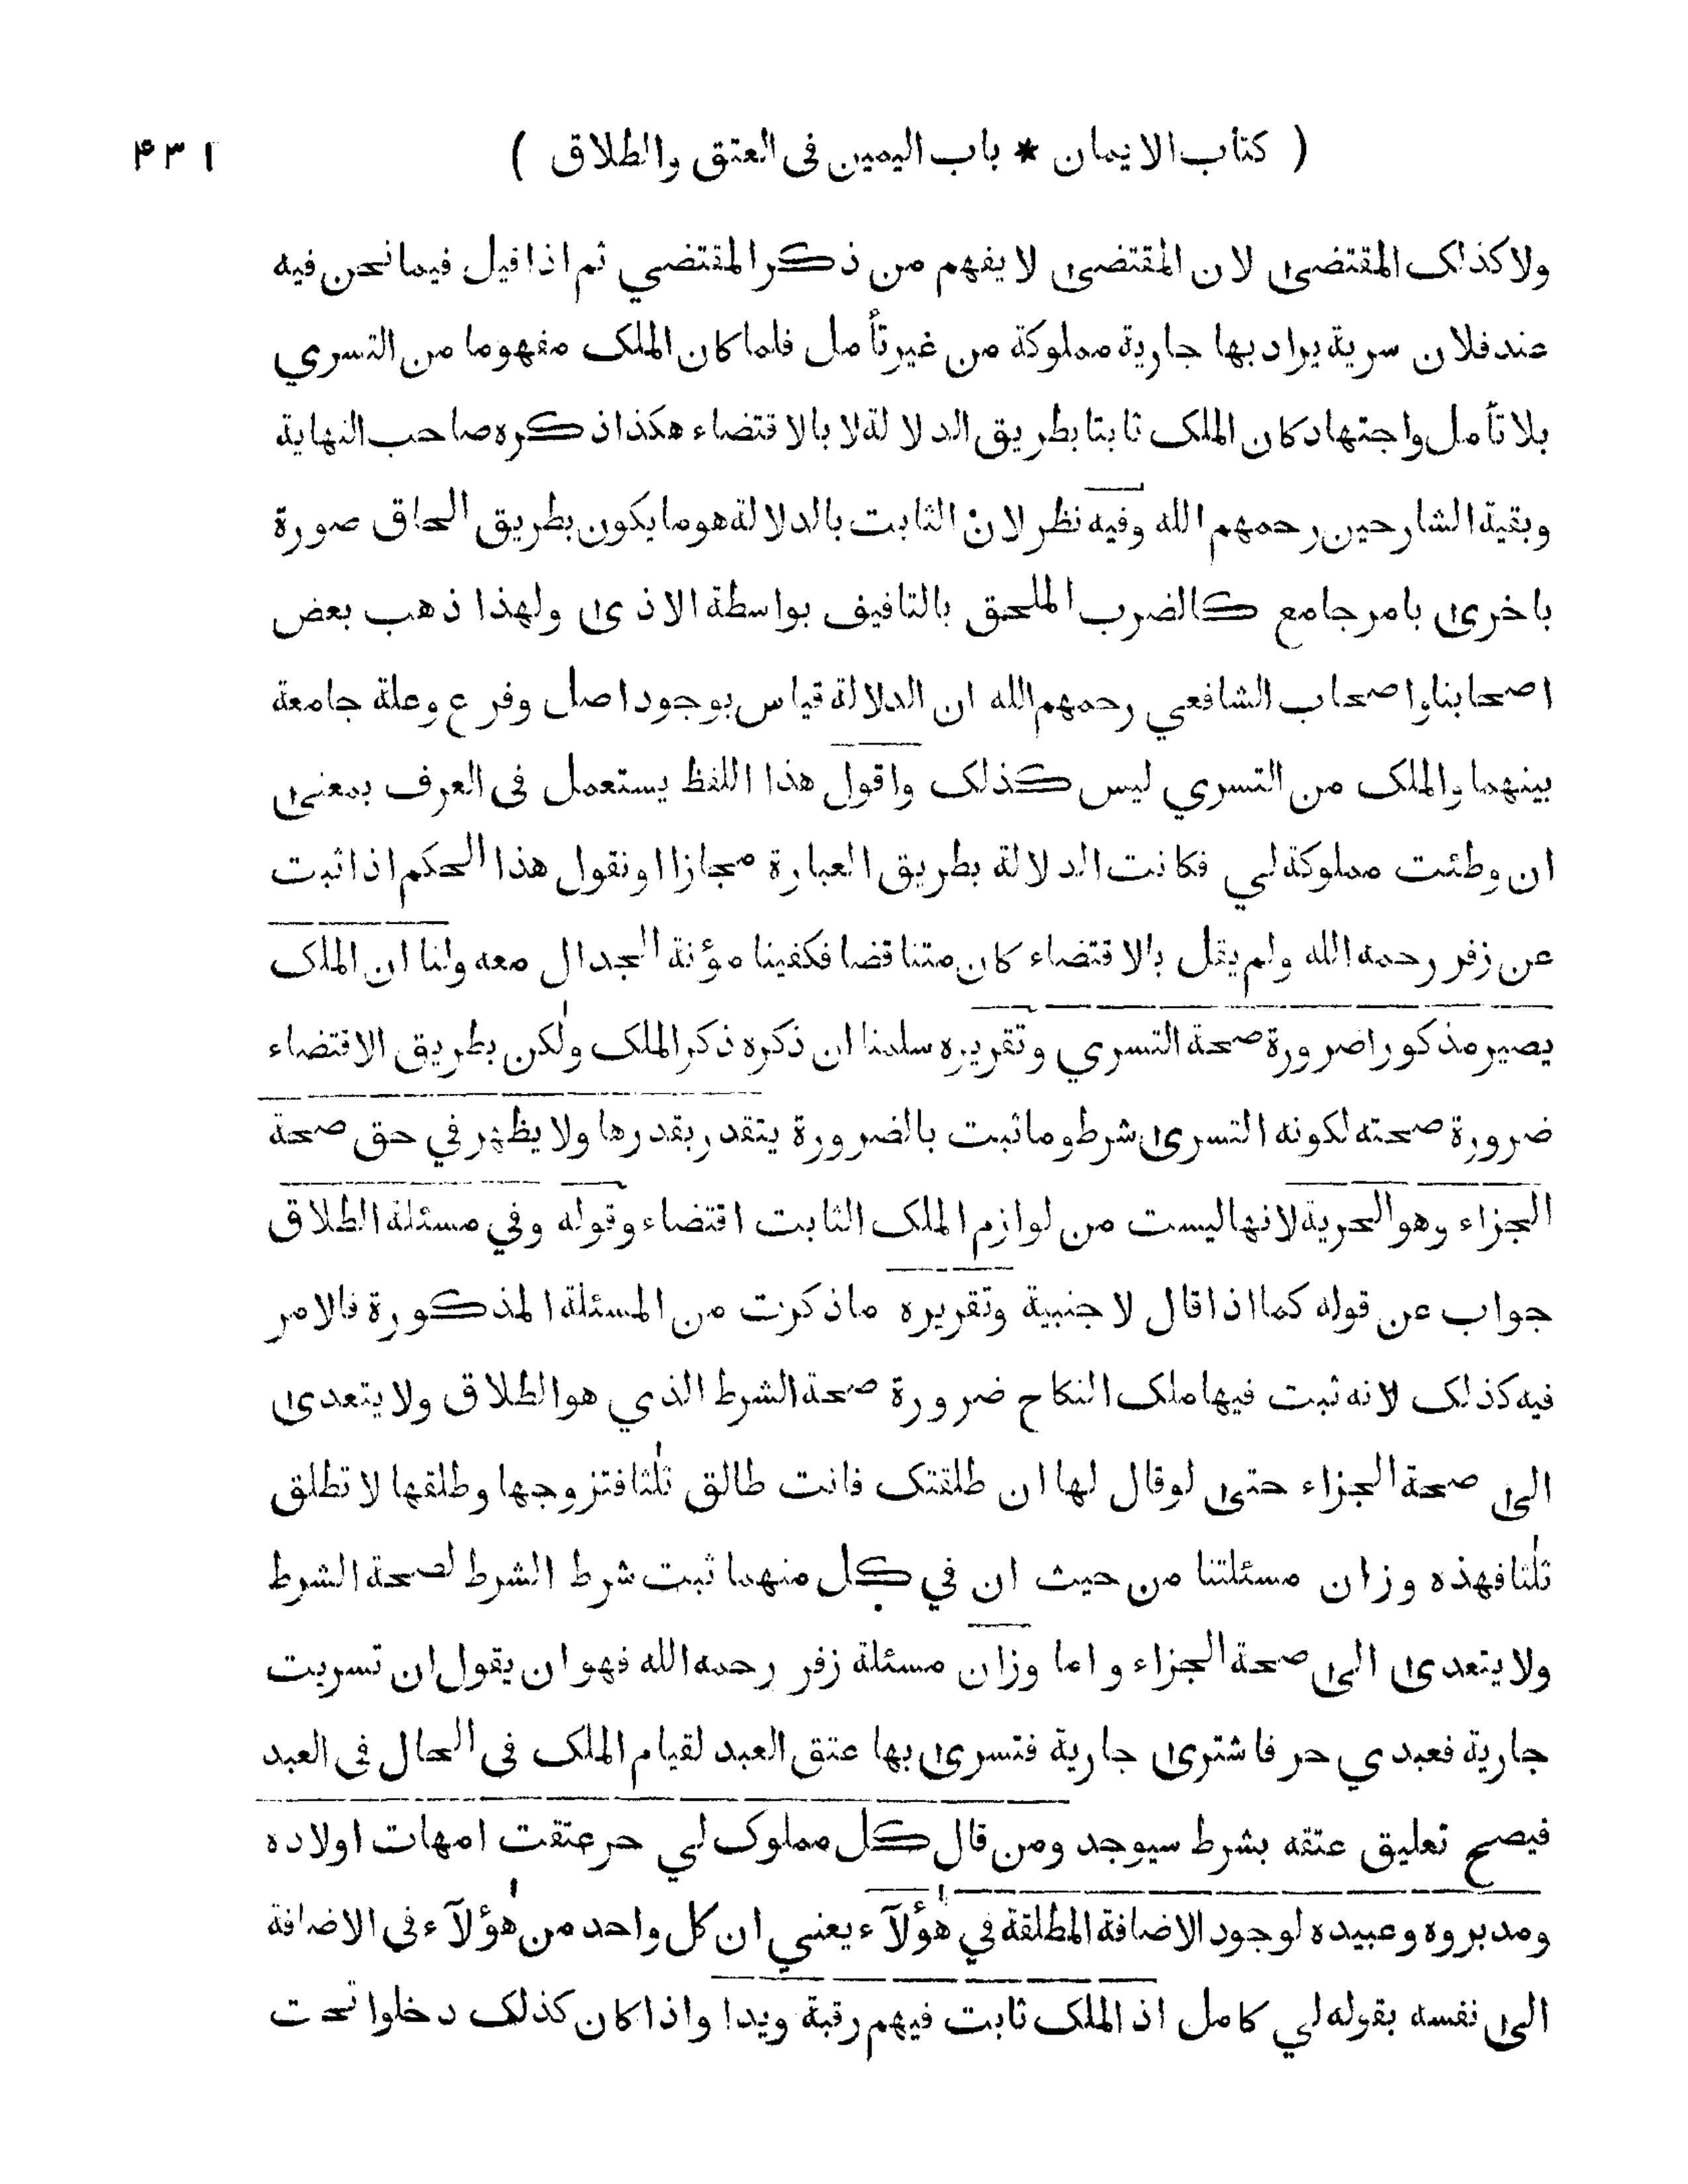 ( كتاب الايمان * باب اليمين فى العتق والطلاق ) ۴۳۱
ولا كذلك المقتضىٰ لان المقتضىٰ لا يفهم من ذكر المقتضي ثم اذا قيل فيما نحن فيه
عند فلان سرية يراد بها جارية مملوكة من غير تأمل فلما كان الملك مفهوما من التسري
بلا تأمل واجتهاد كان الملك ثابتا بطريق الدلالة لا بالاقتضاء هكذا ذكره صاحب النهاية
وبقية الشارحين رحمهم الله وفيه نظر لان الثابت بالدلالة هو ما يكون بطريق الحاق صورة
باخرىٰ بامر جامع كالضرب الملحق بالتافيف بواسطة الاذىٰ ولهذا ذهب بعض
اصحابنا واصحاب الشافعي رحمهم الله ان الدلالة قياس بوجود اصل وفرع وعلة جامعة
بينهما والملك من التسري ليس كذلك واقول هذا اللفظ يستعمل فى العرف بمعنىٰ
ان وطئت مملوكة لي فكانت الدلالة بطريق العبارة مجازا او نقول هذا الحكم اذا ثبت
عن زفر رحمه الله ولم يقل بالاقتضاء كان متناقضا فكفينا مؤنة الجدال معه ولنا ان الملك
يصير مذكورا ضرورة صحة التسري وتقريره سلمنا ان ذكره ذكر الملك ولٰكن بطريق الاقتضاء
ضرورة صحته لكونه التسرىٰ شرط وما ثبت بالضرورة يتقدر بقدرها ولا يظهر في حق صحة
الجزاء وهو الحرية لانها ليست من لوازم الملك الثابت اقتضاء وقوله وفي مسئلة الطلاق
جواب عن قوله كما اذا قال لاجنبية وتقريره ما ذكرت من المسئلة المذكورة فالامر
فيه كذلك لانه ثبت فيها ملك النكاح ضرورة صحة الشرط الذي هو الطلاق ولا يتعدىٰ
الىٰ صحة الجزاء حتىٰ لو قال لها ان طلقتك فانت طالق ثلٰثا فتزوجها وطلقها لا تطلق
ثلٰثا فهذه وزان مسئلتنا من حيث ان في كل منهما ثبت شرط الشرط لصحة الشرط
ولا يتعدىٰ الىٰ صحة الجزاء و اما وزان مسئلة زفر رحمه الله فهو ان يقول ان تسريت
جارية فعبدي حر فاشترىٰ جارية فتسرىٰ بها عتق العبد لقيام الملك فى الحال فى العبد
فيصح تعليق عتقه بشرط سيوجد ومن قال كل مملوك لي حر عتقت امهات اولاده
ومدبروه وعبيده لوجود الاضافة المطلقة في هٰؤلآء يعني ان كل واحد من هٰؤلآء فى الاضافة
الىٰ نفسه بقوله لي كامل اذ الملك ثابت فيهم رقبة ويدا واذا كان كذلك دخلوا تحت